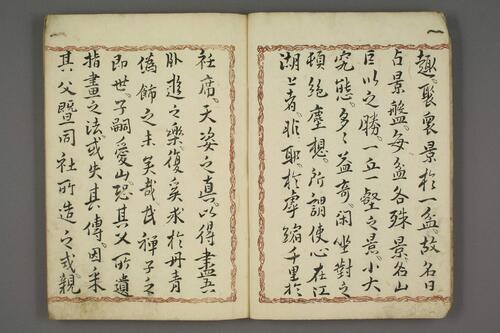 趣。聚景於一盆。故名曰
占景盤。每盆各殊景。名山
巨之勝。一丘一壑之景。小大
究態。多々益奇。閑坐對之
頓絶塵想。所謂使心在江
湖上者。非耶。於虖縮千里於
衽席。天姿之真。以得盡吾
臥遊之樂。復奚求於丹青
偽飾之末矣哉。禪子之
即世。子嗣愛山。恐其父所遺
指畫之法或失其傳。因采
其父曁同社所造之式。親